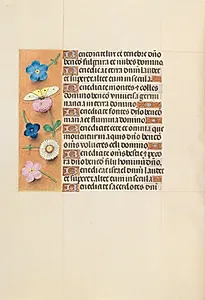 Benedicite lux et tenebre dño
bene⁠ fulgura et nubes domino
Benedicat terra dñm laudet
et superexaltet eum in secula
Benedicite montes et colles
domino benedicite universa germi
nancia in terra domino
Benedicite fontes dño
maria et flumina domino
Benedicite cete et omnia que
moventur in aquis dño
omnes volucres celi domino
Benedicite oms bestie et peco
ra dño benedicite filii hominũ dño
Benedicat israel dñm laudet
et superexaltet eum in secula
Benedicite sacerdotes dñi